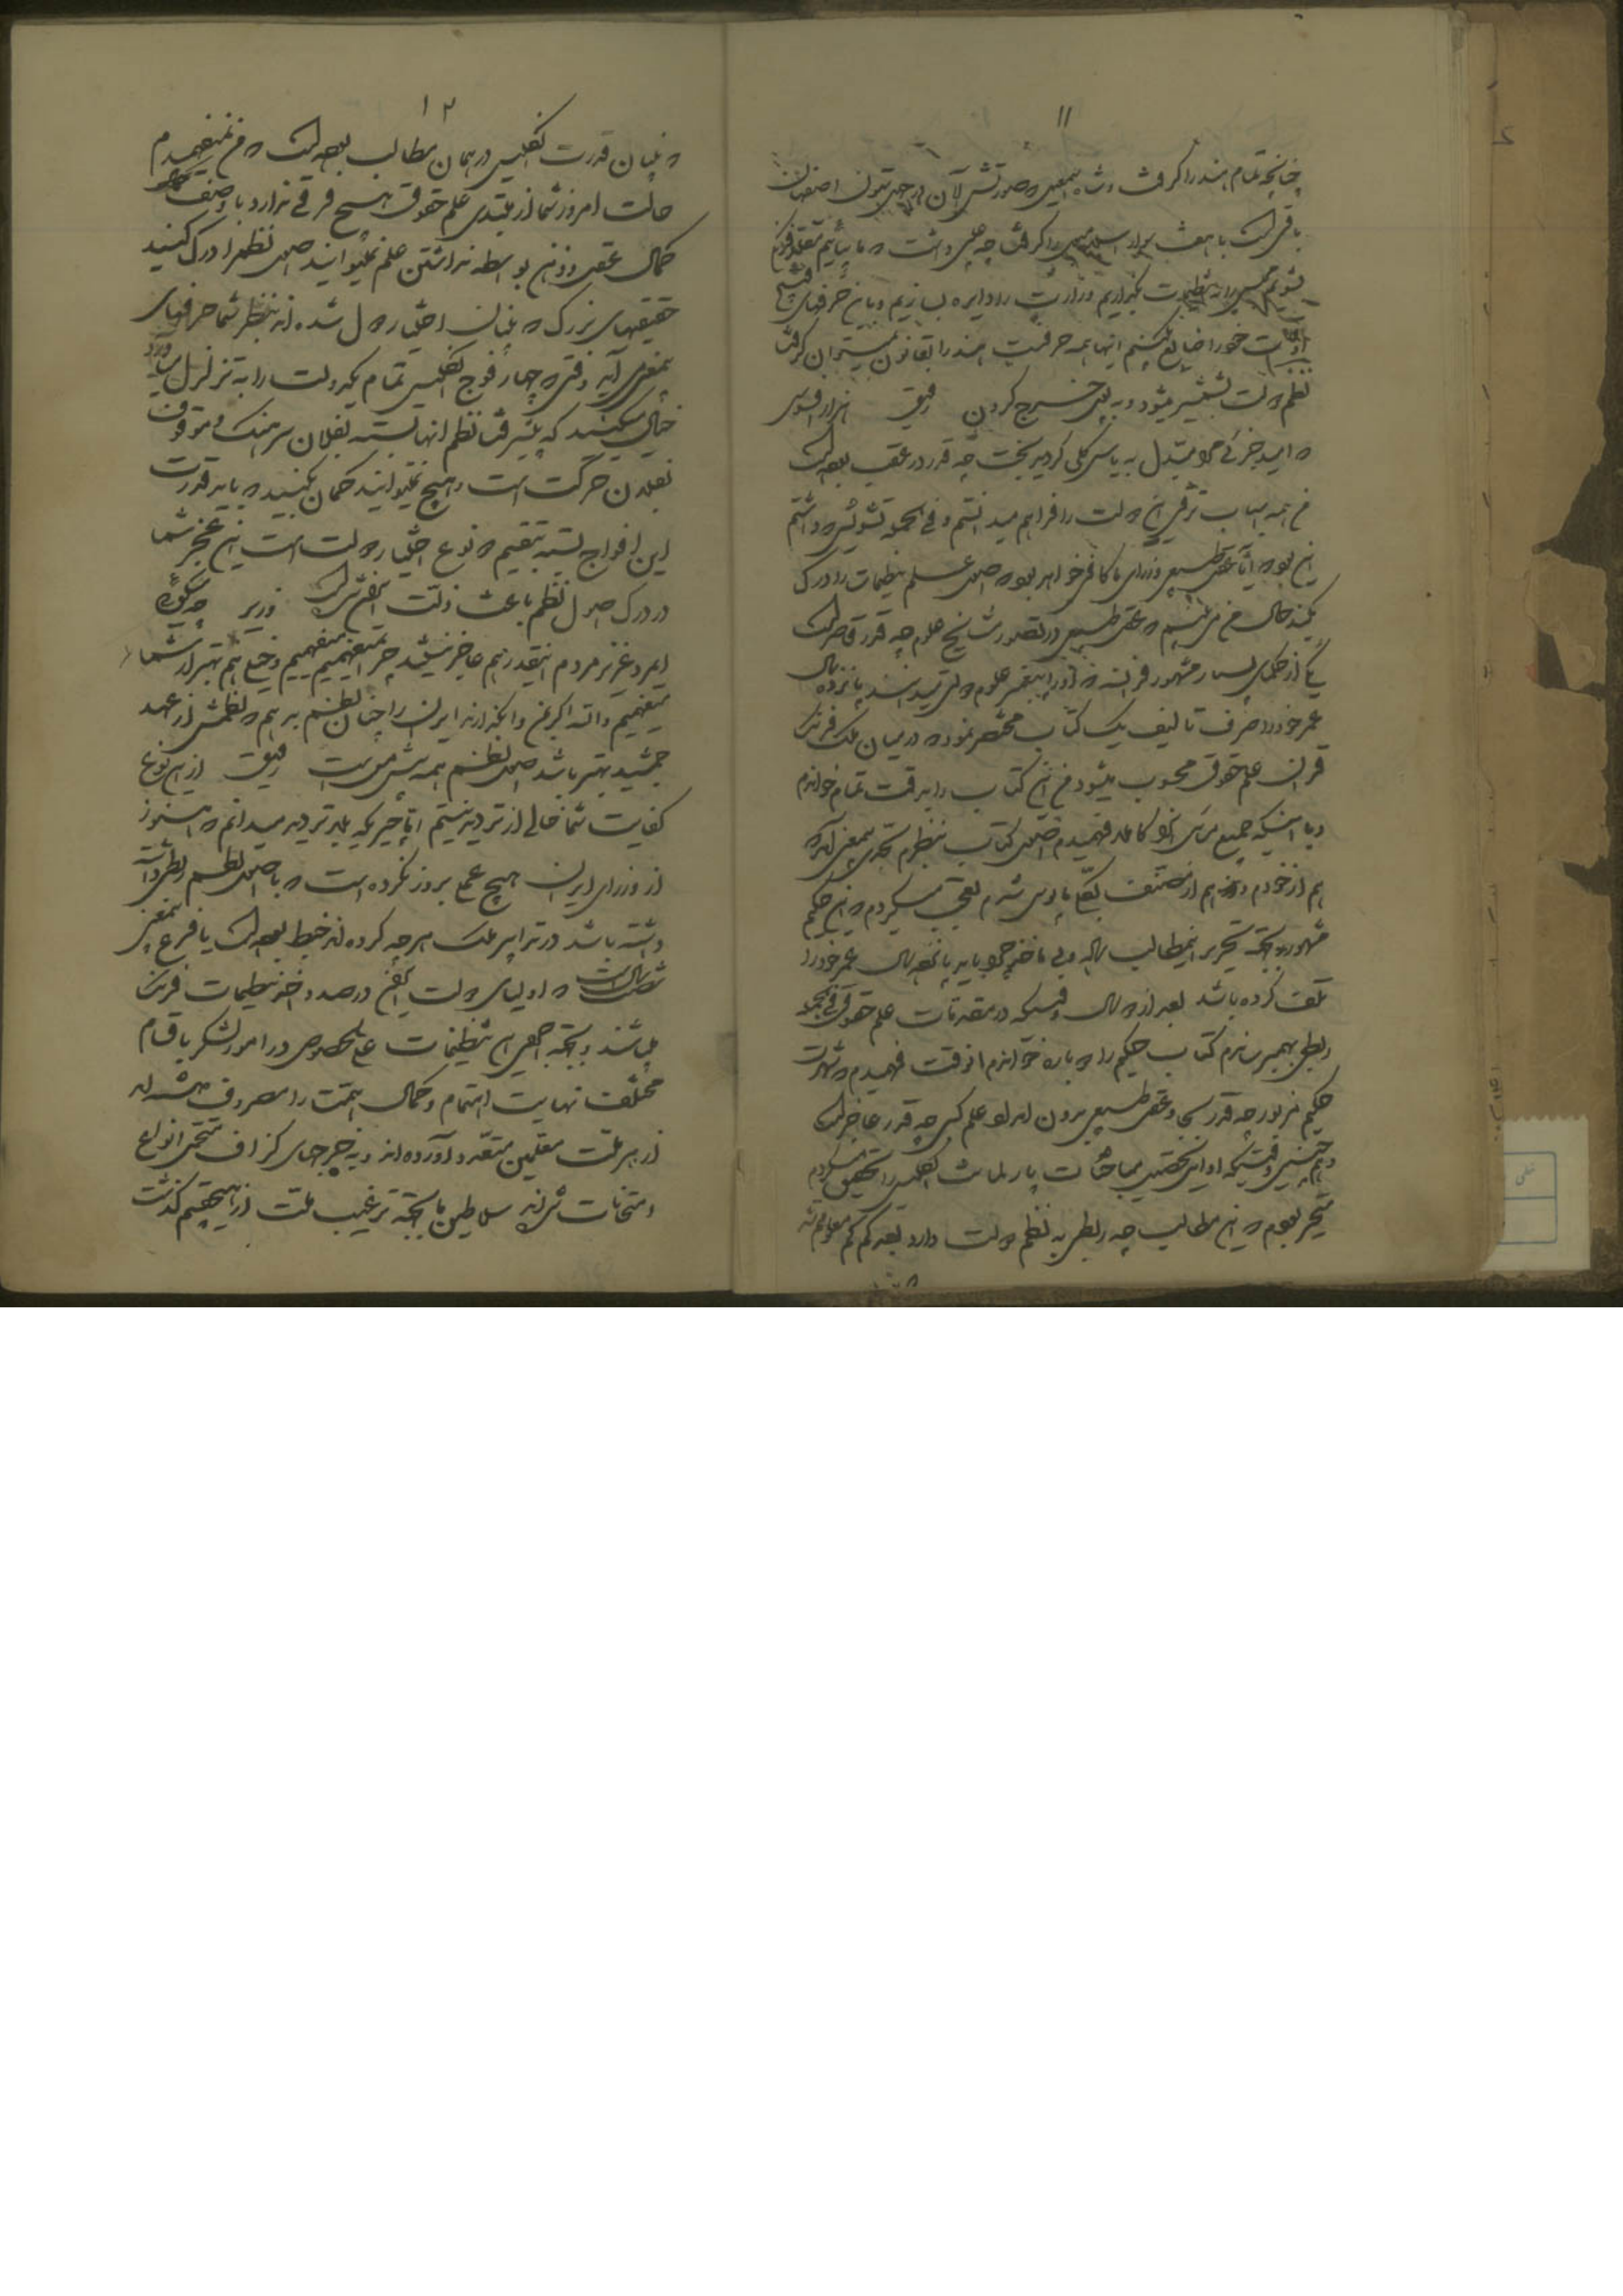 ۱۱
چنانچه تمام هند را گرفت و شاه اسمعیل که صورتش الآن در چهل ستون اصفهان
باقی است با هفت هزار سوار را گرفت چه علمی داشت که ما بیائیم مقلد فرنگ
بشویم مجلس را به تنظیمات بگذاریم وزارت را دایره بسازیم و باین حرفهای
اوقات خود را ضایع بکنیم اینها همه حرفست هند را بقانون نمیتوان گرفت
نظم دولت بشمشیر میشود و به پول خرج کردن رفیق هزار افسوس
که امید جزئی مرا مبدل به یأس کلی کردید بخت چه قدر در عقب بوده است
من همه اسباب ترقی این دولت را فراهم میدانستم و فی الجمله تشویشی که داشتم
این بود که آیا عقل طبیعی وزرای ما کافی خواهد بود که اصول علم تنظیمات را درک
بکند حال من می بینم که عقل طبیعی در تصور نتایج علوم چه قدر قاصر است
یکی از حکمای بسیار مشهور فرانسه که او را پیغمبر علوم دولتی میدانند پانزده سال
عمر خود را صرف تألیف یک کتاب مختصر نمود که در میان ملل فرنگ
قرآن علم حقوق محسوب میشود من این کتاب را بدقت تمام خواندم
و با اینکه جمیع مسائل او را کاملا فهمیدم اصول کتاب بنظرم بحدی بیمعنی آمد که
هم از خودم و هم از مصنف بکلی مأیوس شدم تعجب میکردم که این حکیم
مشهور بجهة تحریر اینمطالب ساده و بی مأخذ چرا باید پانزده سال عمر خود را
تلف کرده باشد بعد از دو سال وقتیکه در مقدمات علم حقوق فی الجمله
ربطی بهم رساندم کتاب حکیم را دوباره خواندم آنوقت فهمیدم که شهرت
حکیم مزبور چه قدر بجا و عقل طبیعی بدون امداد علم کسبی چه قدر عاجز است
و همچنین وقتیکه اوایل تحصیل مباحثات پارلمانت انگلیس را تحقیق میکردم
متحیر بودم که این مطالب چه ربطی به نظم دولت دارد بعد کم کم معلوم شد
۱۲
که بنیان قدرت انگلیس در همان مطالب بوده است که من نمیفهمیدم
حالت امروز شما از مبتدی علم حقوق هیچ فرقی ندارد با وصف
کمال عقل و ذهن بواسطه نداشتن علم نمیتوانید اصول نظم را درک کنید
حقیقتهای بزرگ که بنیان اختیار دول شده اند بنظر شما حرفهای
بیمعنی می آید وقتی که چهار فوج انگلیس تمام یک دولت را به تزلزل میآورد
خیال میکنید که پیشرفت نظم آنها بسته بفلان سرهنگ و موقوف
بفلان حرکت است و هیچ نمیتوانید گمان بکنید که بنای قدرت
این افواج بسته بتقسیم دو نوع اختیار دولت است این عجز شما
در درک اصول نظم باعث ذلت این ملت است وزیر چه میگوئی
ای مرد عزیز مردم اینقدر هم عاجز نیستید چرا نمیفهمیم میفهمیم و خیلی هم بهتر از شما
میفهمیم والله اگر من وابگذارند ایران را چنان نظم بدهم که نظمش از عهد
جمشید بهتر باشد اصول نظم همه پیش من است رفیق از این نوع
کفایت شما خالی از تردید نیستم اما چیزیکه بلا تردید میدانم که هنوز
از وزرای ایران هیچ عملی بروز نکرده است که با اصول نظم ربطی داشته
داشته باشد در تدابیر ملک هر چه کرده اند خبط بوده است یا فرع بیمعنی
شصت سال است که اولیای دولت ایران در صدد اخذ تنظیمات فرنگ
میباشند و بجهة اجرای این تنظیمات علی الخصوص در امور لشکر باقسام
مختلف نهایت اهتمام و کمال همت را مصروف داشته اند
از هر ملت معلمین متعدد آورده اند و به خرجهای گزاف متحمل انواع
امتحانات شده اند سلاطین ما بجهة ترغیب ملت از هیچ قسم گذشت